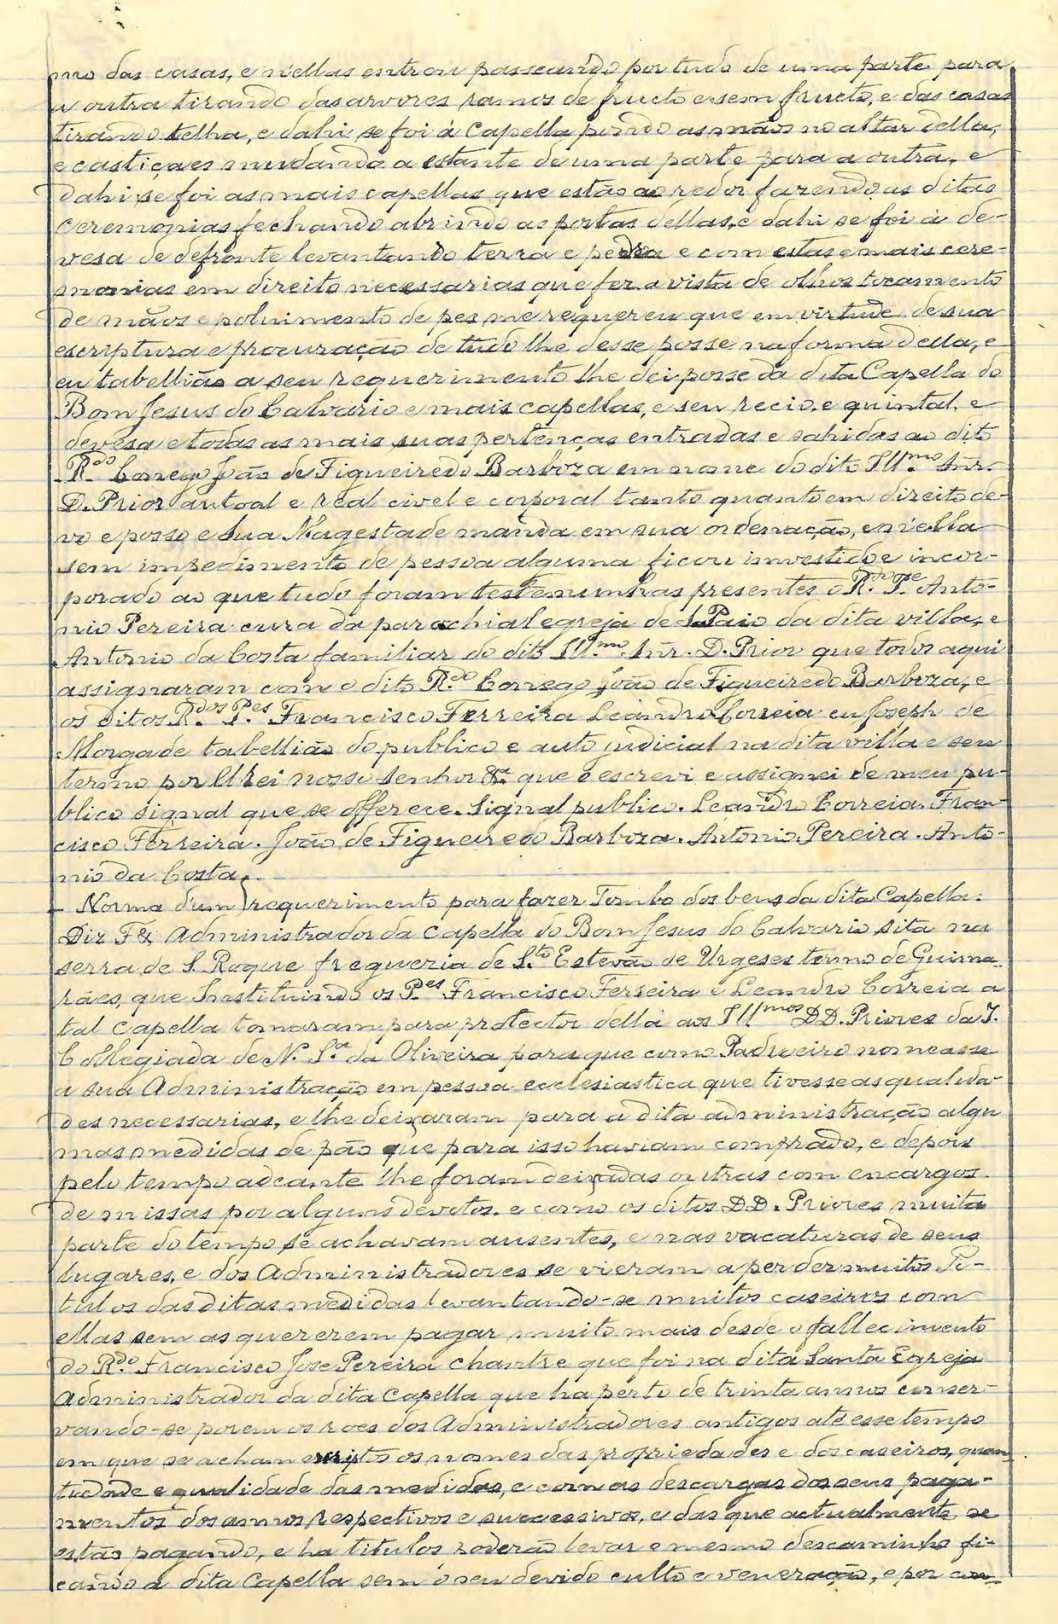 mo das casas, e n'ellas entrou passeando por tudo de uma parte para
a outra tirando das arvores ramos de fructo e sem fructo, e das casas
tirando telha, e dahi se foi á Capella pondo as mãos no altar della,
e castiçaes mudando a estante de uma parte para a outra, e
dahi se foi as mais capellas que estão ao redor fazendo as ditas
ceremonias fechando abrindo as portas dellas, e dahi se foi á de-
vesa de defronte levantando terra e pedra e com estas e mais cere-
monias em direito necessarias que fez a vista de olhos tocamento
de mãos e poluimento de pes me requereu que em virtude de sua
escriptura e procuração de tudo lhe desse posse na forma della, e
eu tabellião a seu requerimento lhe dei posse da dita Capella do
Bom Jesus do Calvario e mais capellas, e seu recio, e quintal, e
devesa e todas as mais suas pertenças entradas e sahidas ao dito
R.do Conego João de Figueiredo Barboza em nome do dito Ill.mo Snr.
D. Prior autoal e real civel e corporal tanto quanto em direito de-
vo e posso e Sua Magestade manda em sua ordenação, e n'ella
sem impedimento de pessoa alguma ficou investido e incor-
porado ao que tudo foram testemunhas presentes o R.do P.e Anto-
nio Pereira cura da parochial egreja de S. Paio da dita villa, e
Antonio da Costa familiar do dito Ill.mo Snr. D. Prior que todos aqui
assignaram com o dito R.do Conego João de Figueiredo Barboza, e
os ditos R.dos P.es Francisco Ferreira Leandro Correia eu Joseph de
Morgade tabellião do publico e auto judicial na dita villa e seu
termo por El Rei nosso Senhor &.a que o escrevi e assignei de meu pu-
blico signal que se offerece. Signal publico. Leandro Correia. Fran-
cisco Ferreira. João de Figueiredo Barboza. Antonio Pereira. Anto-
nio da Costa.
Norma d'um requerimento para fazer Tombo dos bens da dita Capella:
Diz F & Administrador da Capella do Bom Jesus do Calvario sita na
serra de S. Roque freguezia de S.to Estevão de Urgeses termo de Guima-
rães, que Instituindo os P.es Francisco Ferreira e Leandro Correia a
tal capella tomaram para protector della aos Ill.mos DD. Priores da I.
Collegiada de N. S.ra da Oliveira para que como Padroeiro nomeasse
a sua Administração em pessoa ecclesiastica que tivesse as qualida-
des necessarias, e lhe deixaram para a dita administração algu
mas medidas de pão que para isso haviam comprado, e depois
pelo tempo adeante lhe foram deixadas outras com encargos
de missas por alguns devotos. e como os ditos DD. Priores muita
parte do tempo se achavam ausentes, e nas vacaturas de seus
lugares, e dos Administradores se vieram a perder muitos Ti-
tulos das ditas medidas levantando-se muitos caseiros com
ellas sem as quererem pagar muito mais desde o fallecimento
do R.do Francisco Jose Pereira chantre que foi na dita Santa Egreja
Administrador da dita Capella que ha perto de trinta annos conser-
vando-se porem os roes dos Administradores antigos até esse tempo
em que se acham escriptos os nomes das propriedades e dos caseiros, quan
tidade e qualidade das medidas, e com as descargas dos seus paga-
mentos dos annos respectivos e successivos, e das que actualmente se
estão pagando, e ha titulos poderão levar o mesmo descaminho fi-
cando a dita Capella sem o seu devido culto e veneração, e por con-